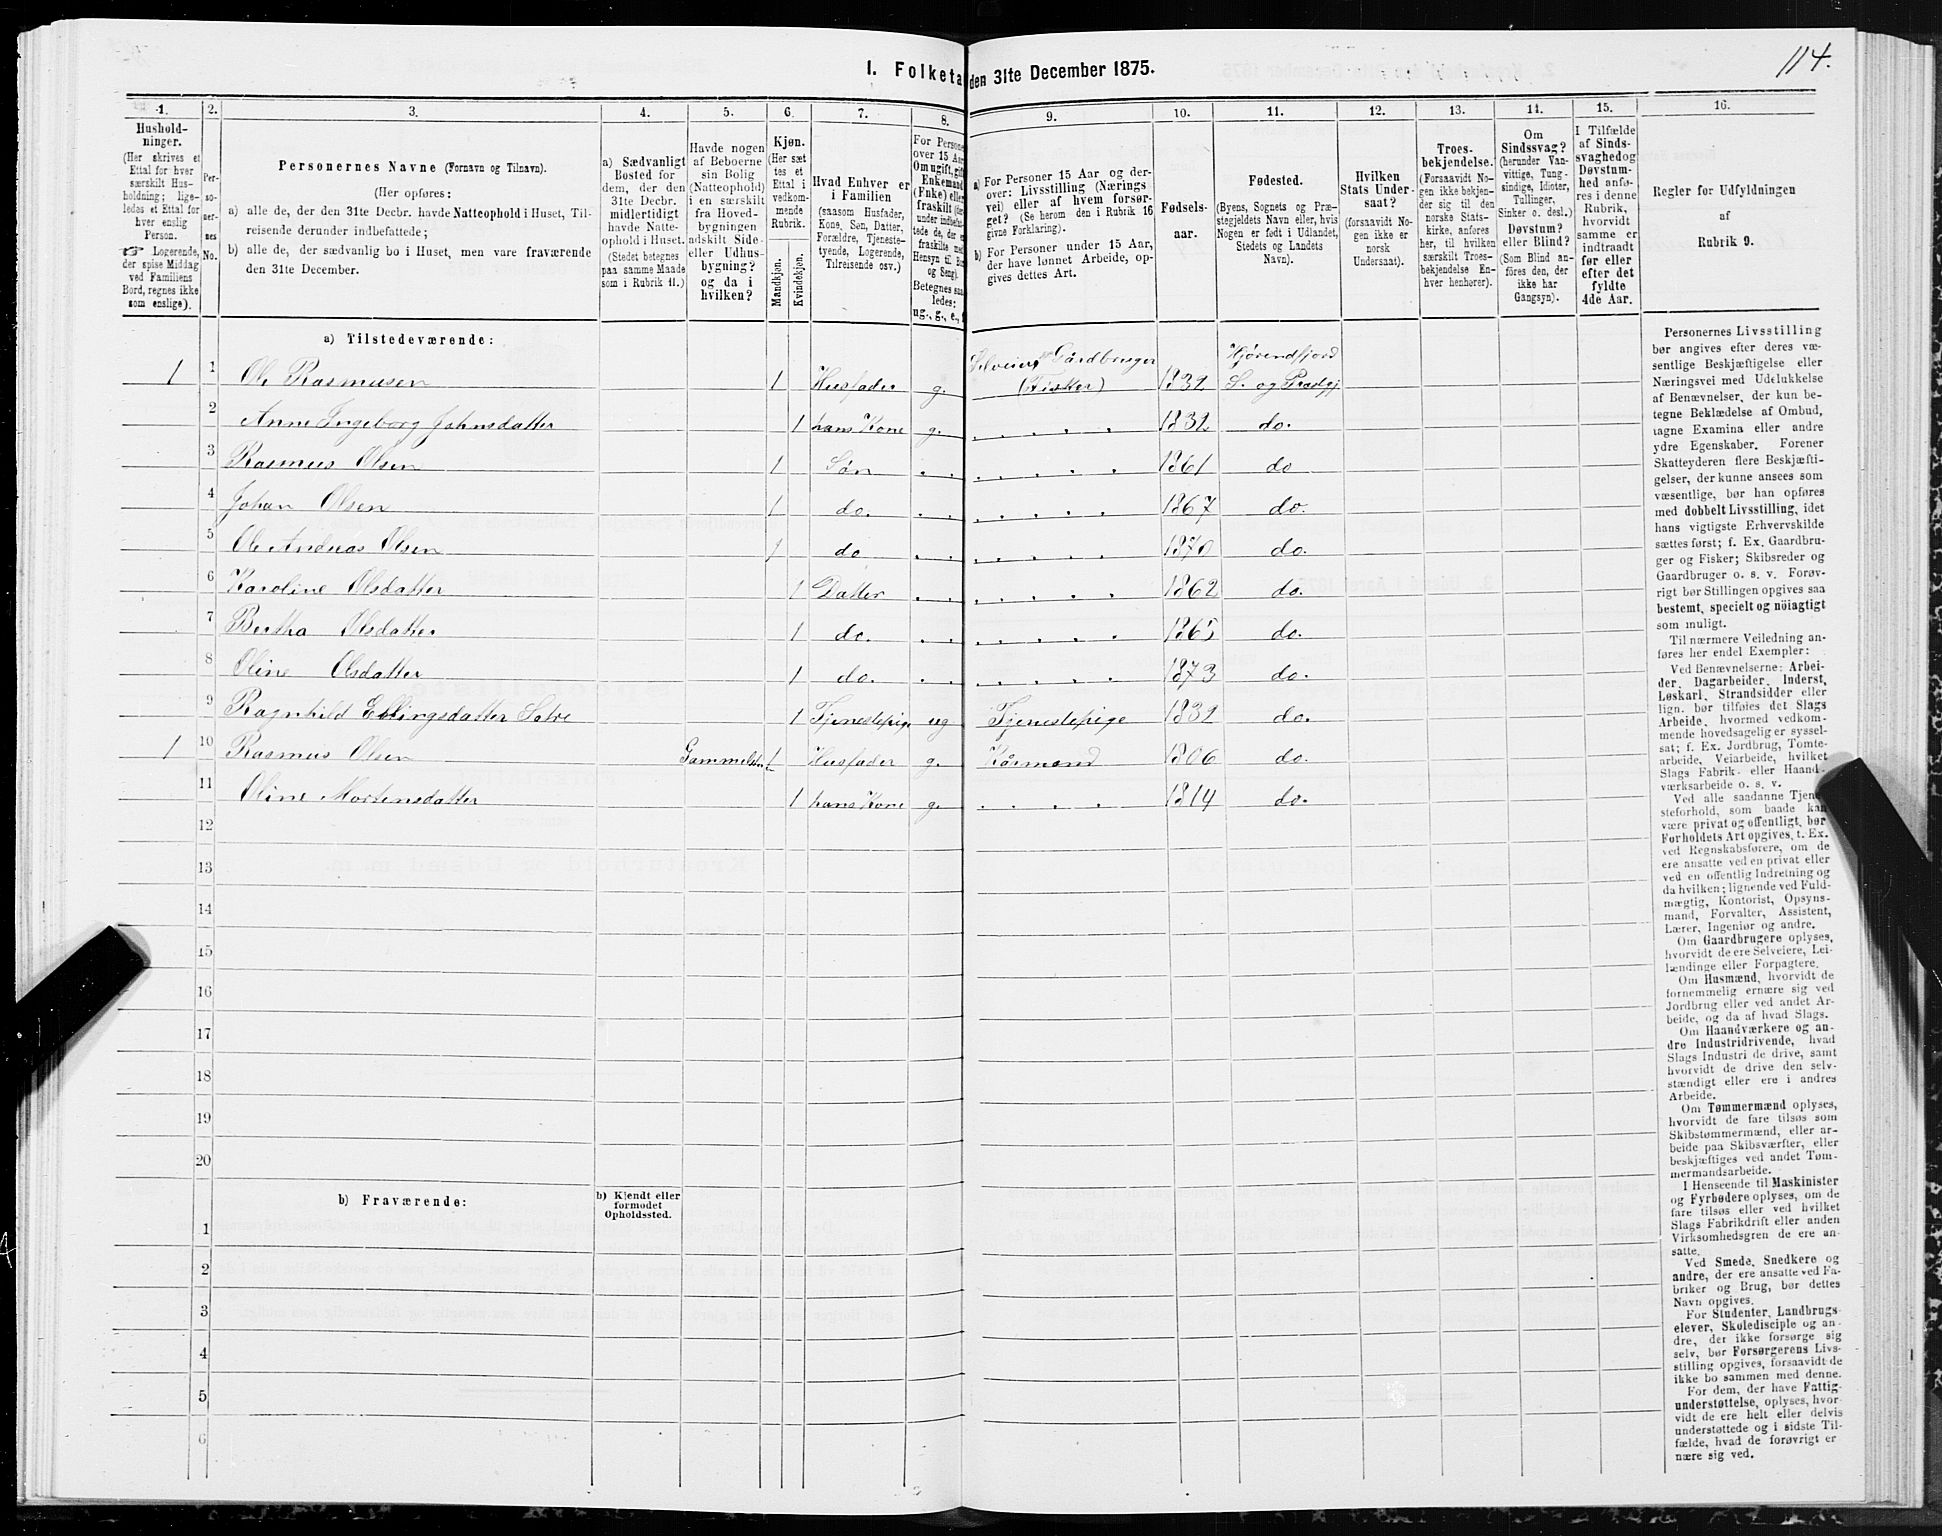 114.
I. Folketa den 31te December 1875.
1. 2. 3. 4. 5. 6. 7. 8. 9. 10. 11. 12. 13. 14. 15. 16.
Hushold-
ninger.
(Her skrives et
Ettal for hver
særskilt Hus-
holdning; lige-
ledes et Ettal for
hver enslig
Person.
☞ Logerende,
der spise Middag
ved Familiens
Bord, regnes ikke
som enslige).
Per-
so-
ner-
nes
No.
Personernes Navne (Fornavn og Tilnavn).
(Her opføres:
a) alle de, der den 31te Decbr. havde Natteophold i Huset, Til-
reisende derunder indbefattede;
b) alle de, der sædvanlig bo i Huset, men vare fraværende
den 31te December.
a) Sædvanligt
Bosted for
dem, der den
31te Decbr.
midlertidigt
havde Natte-
ophold i Huset.
(Stedet betegnes
paa samme Maade
som i Rubrik 11.)
Havde nogen
af Beboerne
sin Bolig
(Natteophold)
i en særskilt
fra Hoved-
bygningen
adskilt Side-
eller Udhus-
bygning?
og da i
hvilken?
Kjøn.
(Her sæt
tes et
Ettal i
vedkom-
mende
Rubrik.
Mandkjøn.
Kvindekjøn.
Hvad Enhver er
i Familien
(saasom Husfader,
Kone, Søn, Datter,
Forældre, Tjeneste-
tyende, Logerende,
Tilreisende osv.)
For Persone
over 15 Aar
Om ugift, gift
Enkemand
(Enke) eller
fraskilt
under indbefat-
tede de, der e
fraskilte m
Hensyn til B
og Seng).
Betegnes saa
ledes:
ug., g., e.,
a) For Personer 15 Aar og der-
over: Livsstilling (Nærings
vei) eller af hvem forsør-
get? (Se herom den i Rubrik 16
givne Forklaring).
b) For Personer under 15 Aar,
der have lønnet Arbeide, op-
gives dettes Art.
Fødsels-
aar.
Fødested.
(Byens, Sognets og Præ-
stegjeldets Navn eller, hvis
Nogen er født i Udlandet,
Stedets og Landets
Navn).
Hvilken
Stats Under-
saat?
(forsaavidt No-
gen ikke er
norsk
Undersaat).
Troes-
bekjendelse.
(Forsaavidt No-
gen ikke bekjen-
der sig til den
norske Stats-
kirke, anføres
her, til hvilken
særskilt Troes-
bekjendelse En-
hver henhører).
Om
Sindssvag?
(herunder Van-
vittige, Tung-
sindige, Idioter,
Tullinger,
Sinker o. desl.)
Døvstum?
eller Blind?
(Som Blind an-
føres den, der
ikke har
Gangsyn).
I Tilfælde
af Sinds-
svaghedog
Døvstum-
hed anfø-
res i denne
Rubrik,
hvorvidt
samme er
indtraadt
før eller
efter det
fyldte
4de Aar.
Regler for Udfyldningen
af
Rubrik 9.
a) Tilstedeværende:
1 1 Ole Rasmusen 1 Husfader g. Selveier Gårdbruger (Fisker) 1832 Hjørendfjord S. og Præstgj
2 Anne Ingeborg Johnsdatter 1 hans Kone g. 1832 do.
3 Rasmus Olsen 1 Søn 1861 do
4 Johan Olsen 1 do. 1867 do.
5 Ole Andreas Olsen 1 do 1870 do.
6 Karoline Olsdatter 1 Datter 1862 do.
7 Bertha Olsdatter 1 do. 1865 do.
8 Oline Olsdatter 1 do. 1873 do.
9 Ragnhild Ellingsdatter Sætre 1 Tjenestepige ug Tjenestepige 1832 do.
1 10 Rasmus Olsen 1 Husfader g. Kårmand 1806 do.
11 Oline Mortensdatter 1 hans Kone g. 1814 do.
12
13
14
15
16
17
18
19
20
b) Fraværende:
b) Kjendt eller
formodet
Opholdssted.
1
2
3
4
5
6
Personernes Livsstilling
bør angives efter deres væ-
sentlige Beskjæftigelse eller
Næringsvei med Udelukkelse
af Benævnelser, der kun be-
tegne Beklædelse af Ombud,
tagne Examina eller andre
ydre Egenskaber. Forener
Skatteyderen flere Beskjæfti-
gelser, der kunne ansees som
væsentlige, bør han opføres
med dobbelt Livsstilling, idet
hans vigtigste Erhvervskilde
sættes først; f. Ex. Gaardbru-
ger og Fisker; Skibsreder og
Gaardbruger o. s. v. Forøv-
rigt bør Stillingen opgives saa
bestemt, specielt og nöiagtigt
som muligt.
Til nærmere Veiledning an-
føres her endel Exempler:
Ved Benævnelserne: Arbei-
der, Dagarbeider, Inderst,
Løskarl, Strandsidder eller
lign. bør tilføies det Slags
Arbeide, hvormed vedkom-
mende hovedsagelig er syssel-
sat; f. Ex. Jordbrug, Tomte-
arbeide, Veiarbeide, hvilket
Slags Fabrik- eller Haand-
værksarbeide o. s. v.
Ved alle saadanne Tjene
steforhold, som baade kan
være privat og offentligt, bør
Forholdets Art opgives, t. Ex.
ved Regnskabsførere, om de
ere ansatte ved en privat eller
ved en offentlig Indretning og
da hvilken; lignende ved Fuld-
mægtig, Kontorist, Opsyns-
mand, Forvalter, Assistent,
Lærer, Ingeniør og andre.
Om Gaardbrugere oplyses,
hvorvidt de ere Selveiere, Lei-
lændinge eller Forpagtere.
Om Husmænd, hvorvidt de
fornemmelig ernære sig ved
Jordbrug eller ved andet Ar-
beide, og da af hvad Slags.
Om Haandværkere og an-
dre Industridrivende, hvad
Slags Industri de drive, samt
hvorvidt de drive den selv-
stændigt eller ere i andres
Arbeide.
Om Tømmermænd oplyses,
hvorvidt de fare tilsøs som
Skibstømmermænd, eller ar-
beide paa Skibsværfter, eller
beskjæftiges ved andet Tøm-
mermandsarbeide.
I Henseende til Maskinister
og Fyrbødere oplyses, om de
fare tilsøs eller ved hvilket
Slags Fabrikdrift eller anden
Virksomhedsgren de ere an-
satte.
Ved Smede, Snedkere og
andre, der ere ansatte ved Fa-
briker og Brug, bør dettes
Navn opgives.
For Studenter, Landbrugs-
elever, Skoledisciple og an-
dre, der ikke forsørge sig
selv, bør Forsørgerens Livs-
stilling opgives, forsaavidt de
ikke bo sammen med denne.
For dem, der have Fattig-
understøttelse, oplyses, hvor-
vidt de ere helt eller delvis
understøttede og i sidste Til-
fælde, hvad de forøvrigt er
nære sig ved.